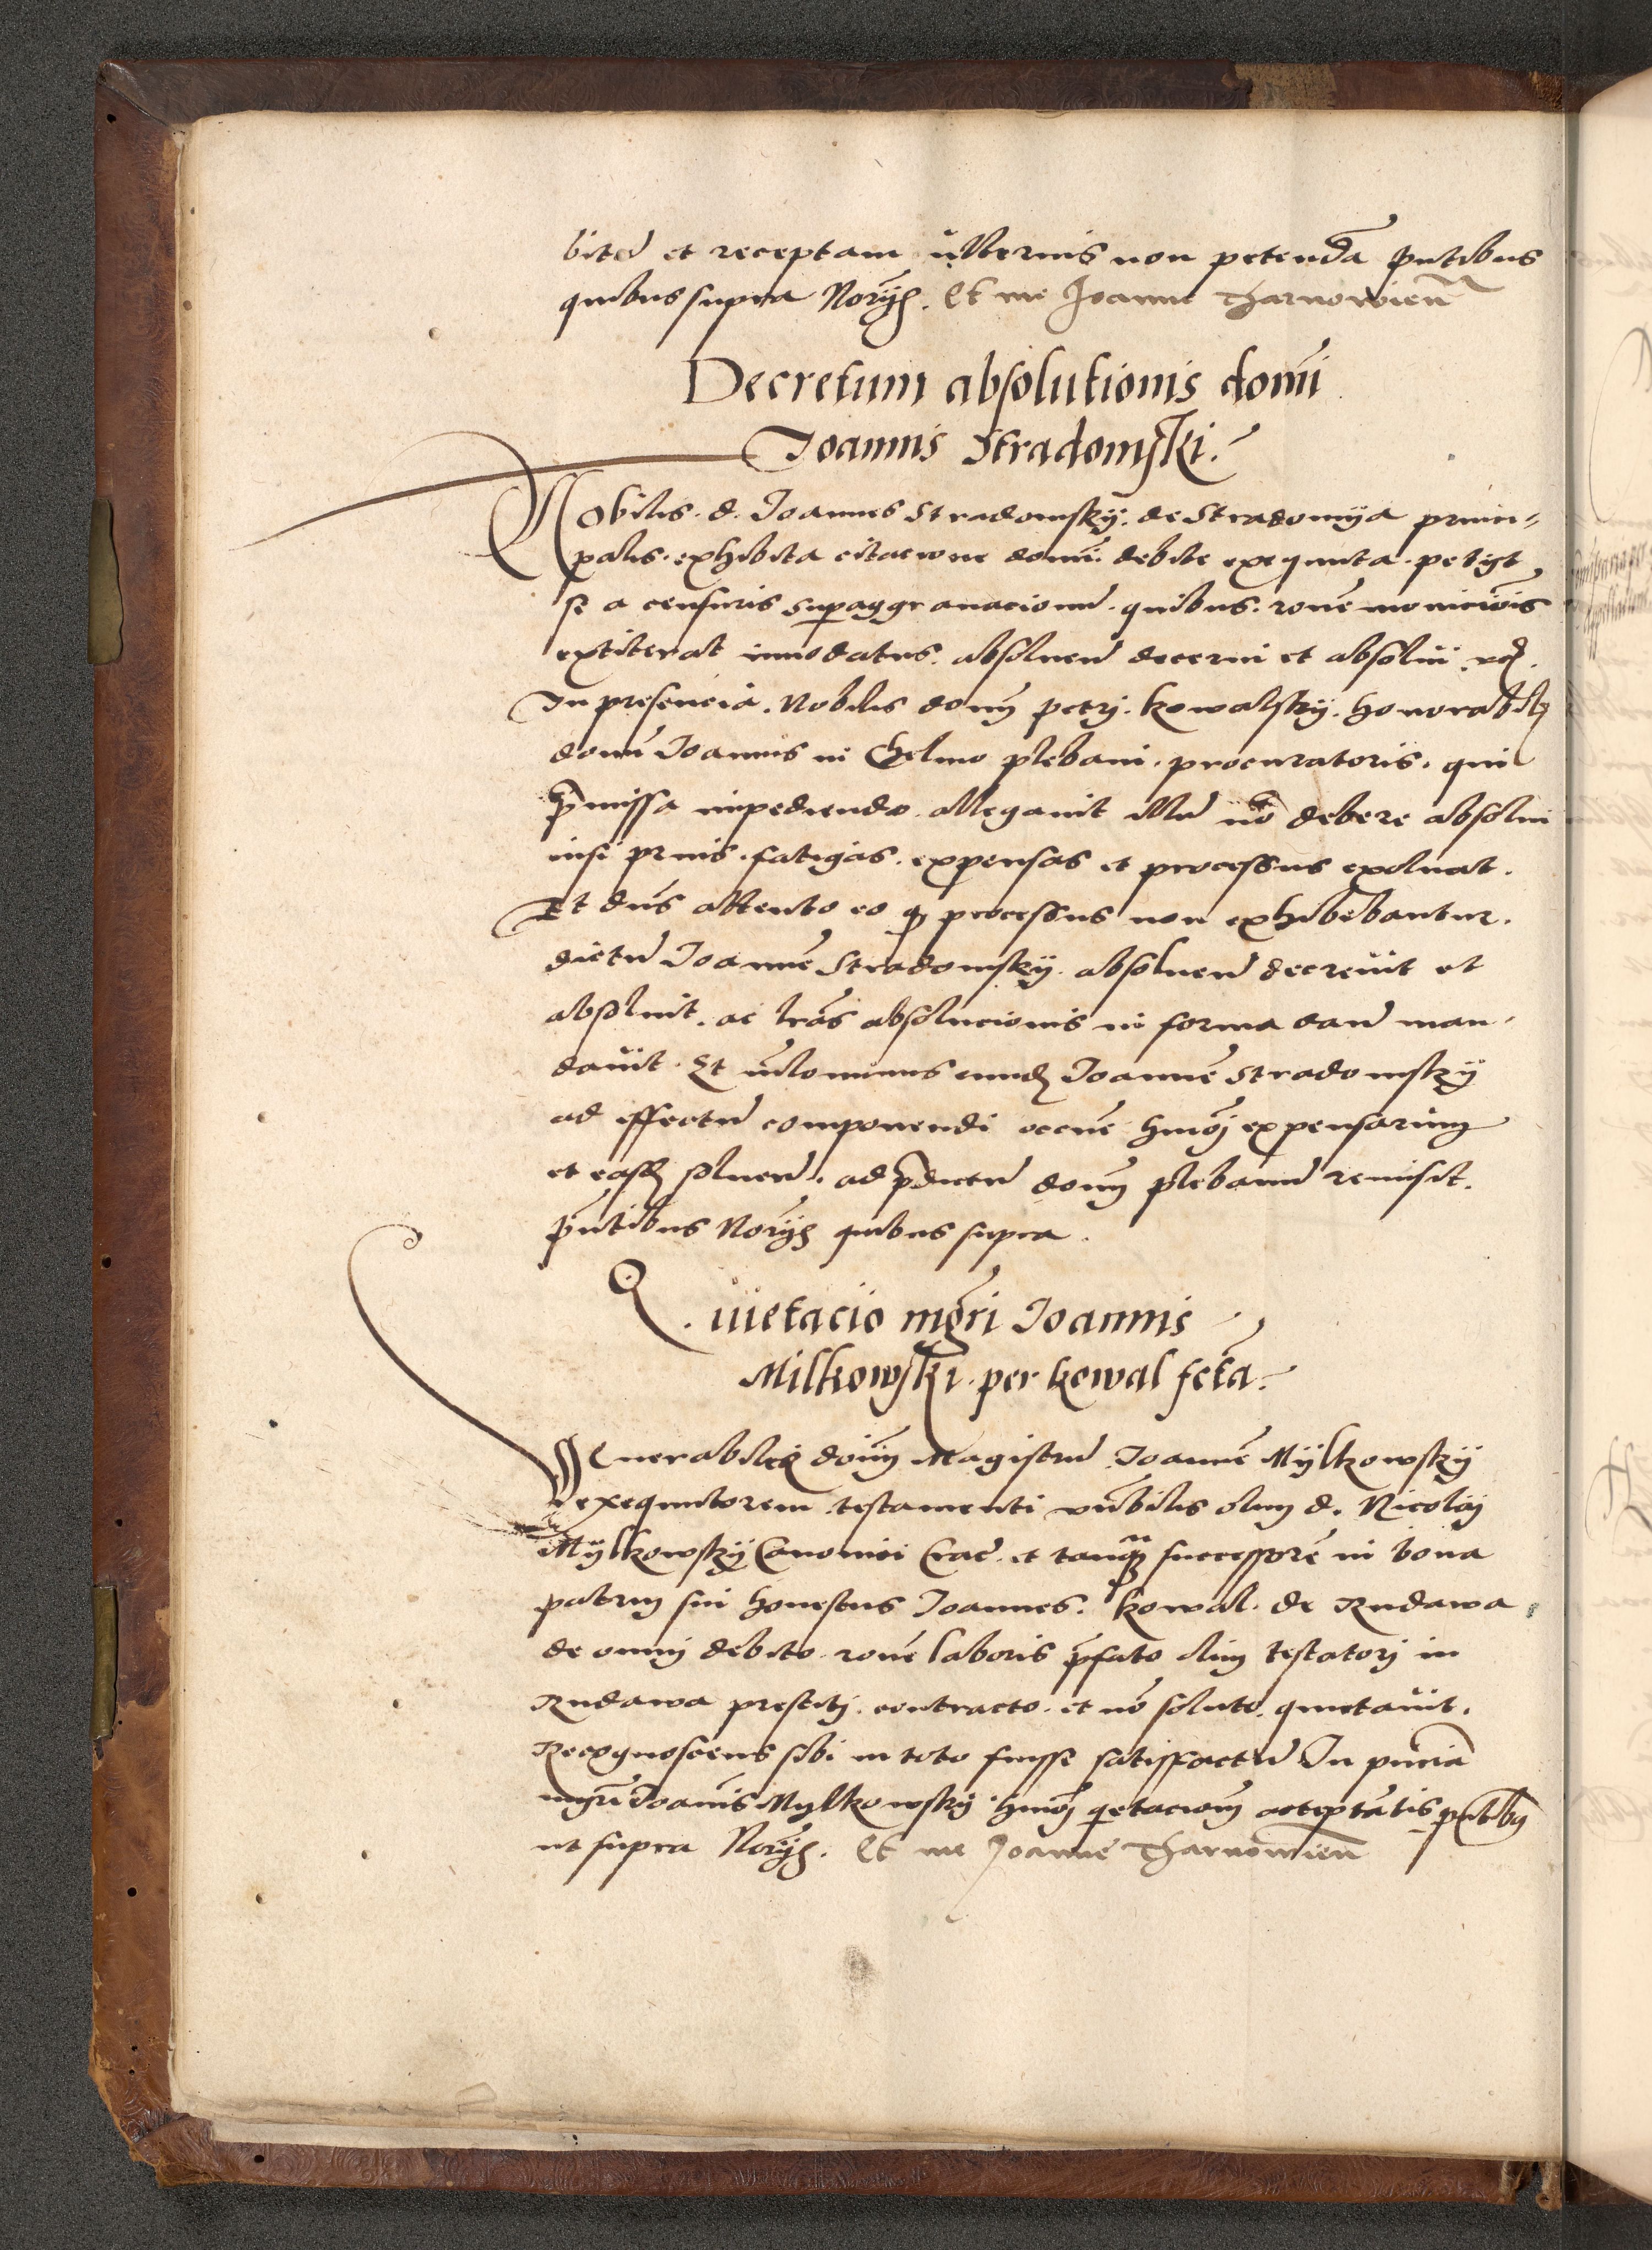 bitā et receptam ulterius non petendā p̄ntibus
quibus supra Norÿs. Et me Joanne Tharnowien̄
Decretum absolutionis domī
Joannis Stradomski.
Nobilis. d. Joannes Stradomskÿ. de Stradomÿa princi-
palis. exhibita citacione domī. debite exequuta. petÿt
se a censuris supaggranacionū. quibus. ronē moniciōis
extiterat innodatus. absoluen̄ decerni et absolui.
In presencia. Nobilis domȷ̄ petrj. kowalskÿ. honorabilȝ
domī Joannis in Chelmo plebani. procuratoris. qui
p̄missa impediendo allegauit illū nō debere absolui
nisi prius. fatigas. expensas et processus exoluat.
Et dn̄s attento eo qȝ processus non exhibebantur.
dictū Joannē Stradomskÿ. absoluen̄ decreuit et
absoluit. ac lrās absolucionis in forma dan̄ man-
dauit. Et nīlominus eundȝ Joannē Stradomskÿ
ad effectū componendi occnē hmōj expensarum
et easdȝ soluen̄. ad p̄dictū domȷ̄ plebanū remisit.
p̄ntibus Norÿs quibus supra.
Quietacio mḡri Joannis
Milkowski. per kowal fctā.
Venerabileȝ domȷ̄ Magistrū Joannē Mÿlkowskÿ
exequutorem testamenti vn̄bilis olim d. Nicolaj
Mÿlkowskÿ Canonici Crac̄. et tanqȝ successorē in bona
patruj sui honestus Joannes. kowal. de Rudawa
de omni debito. ronē laboris p̄fato olim testatorj in
Rudawa prestitj. contracto. et nō soluto. quietauit.
Recognoscens sibi in toto fuisse satisfactū In pn̄cia
mgrī Joannis Mylkowskÿ hmōj qetacionȷ̄ acceptantis p̄ntibȝ
ut supra Norÿs. Et me Joanne Tharnowien̄